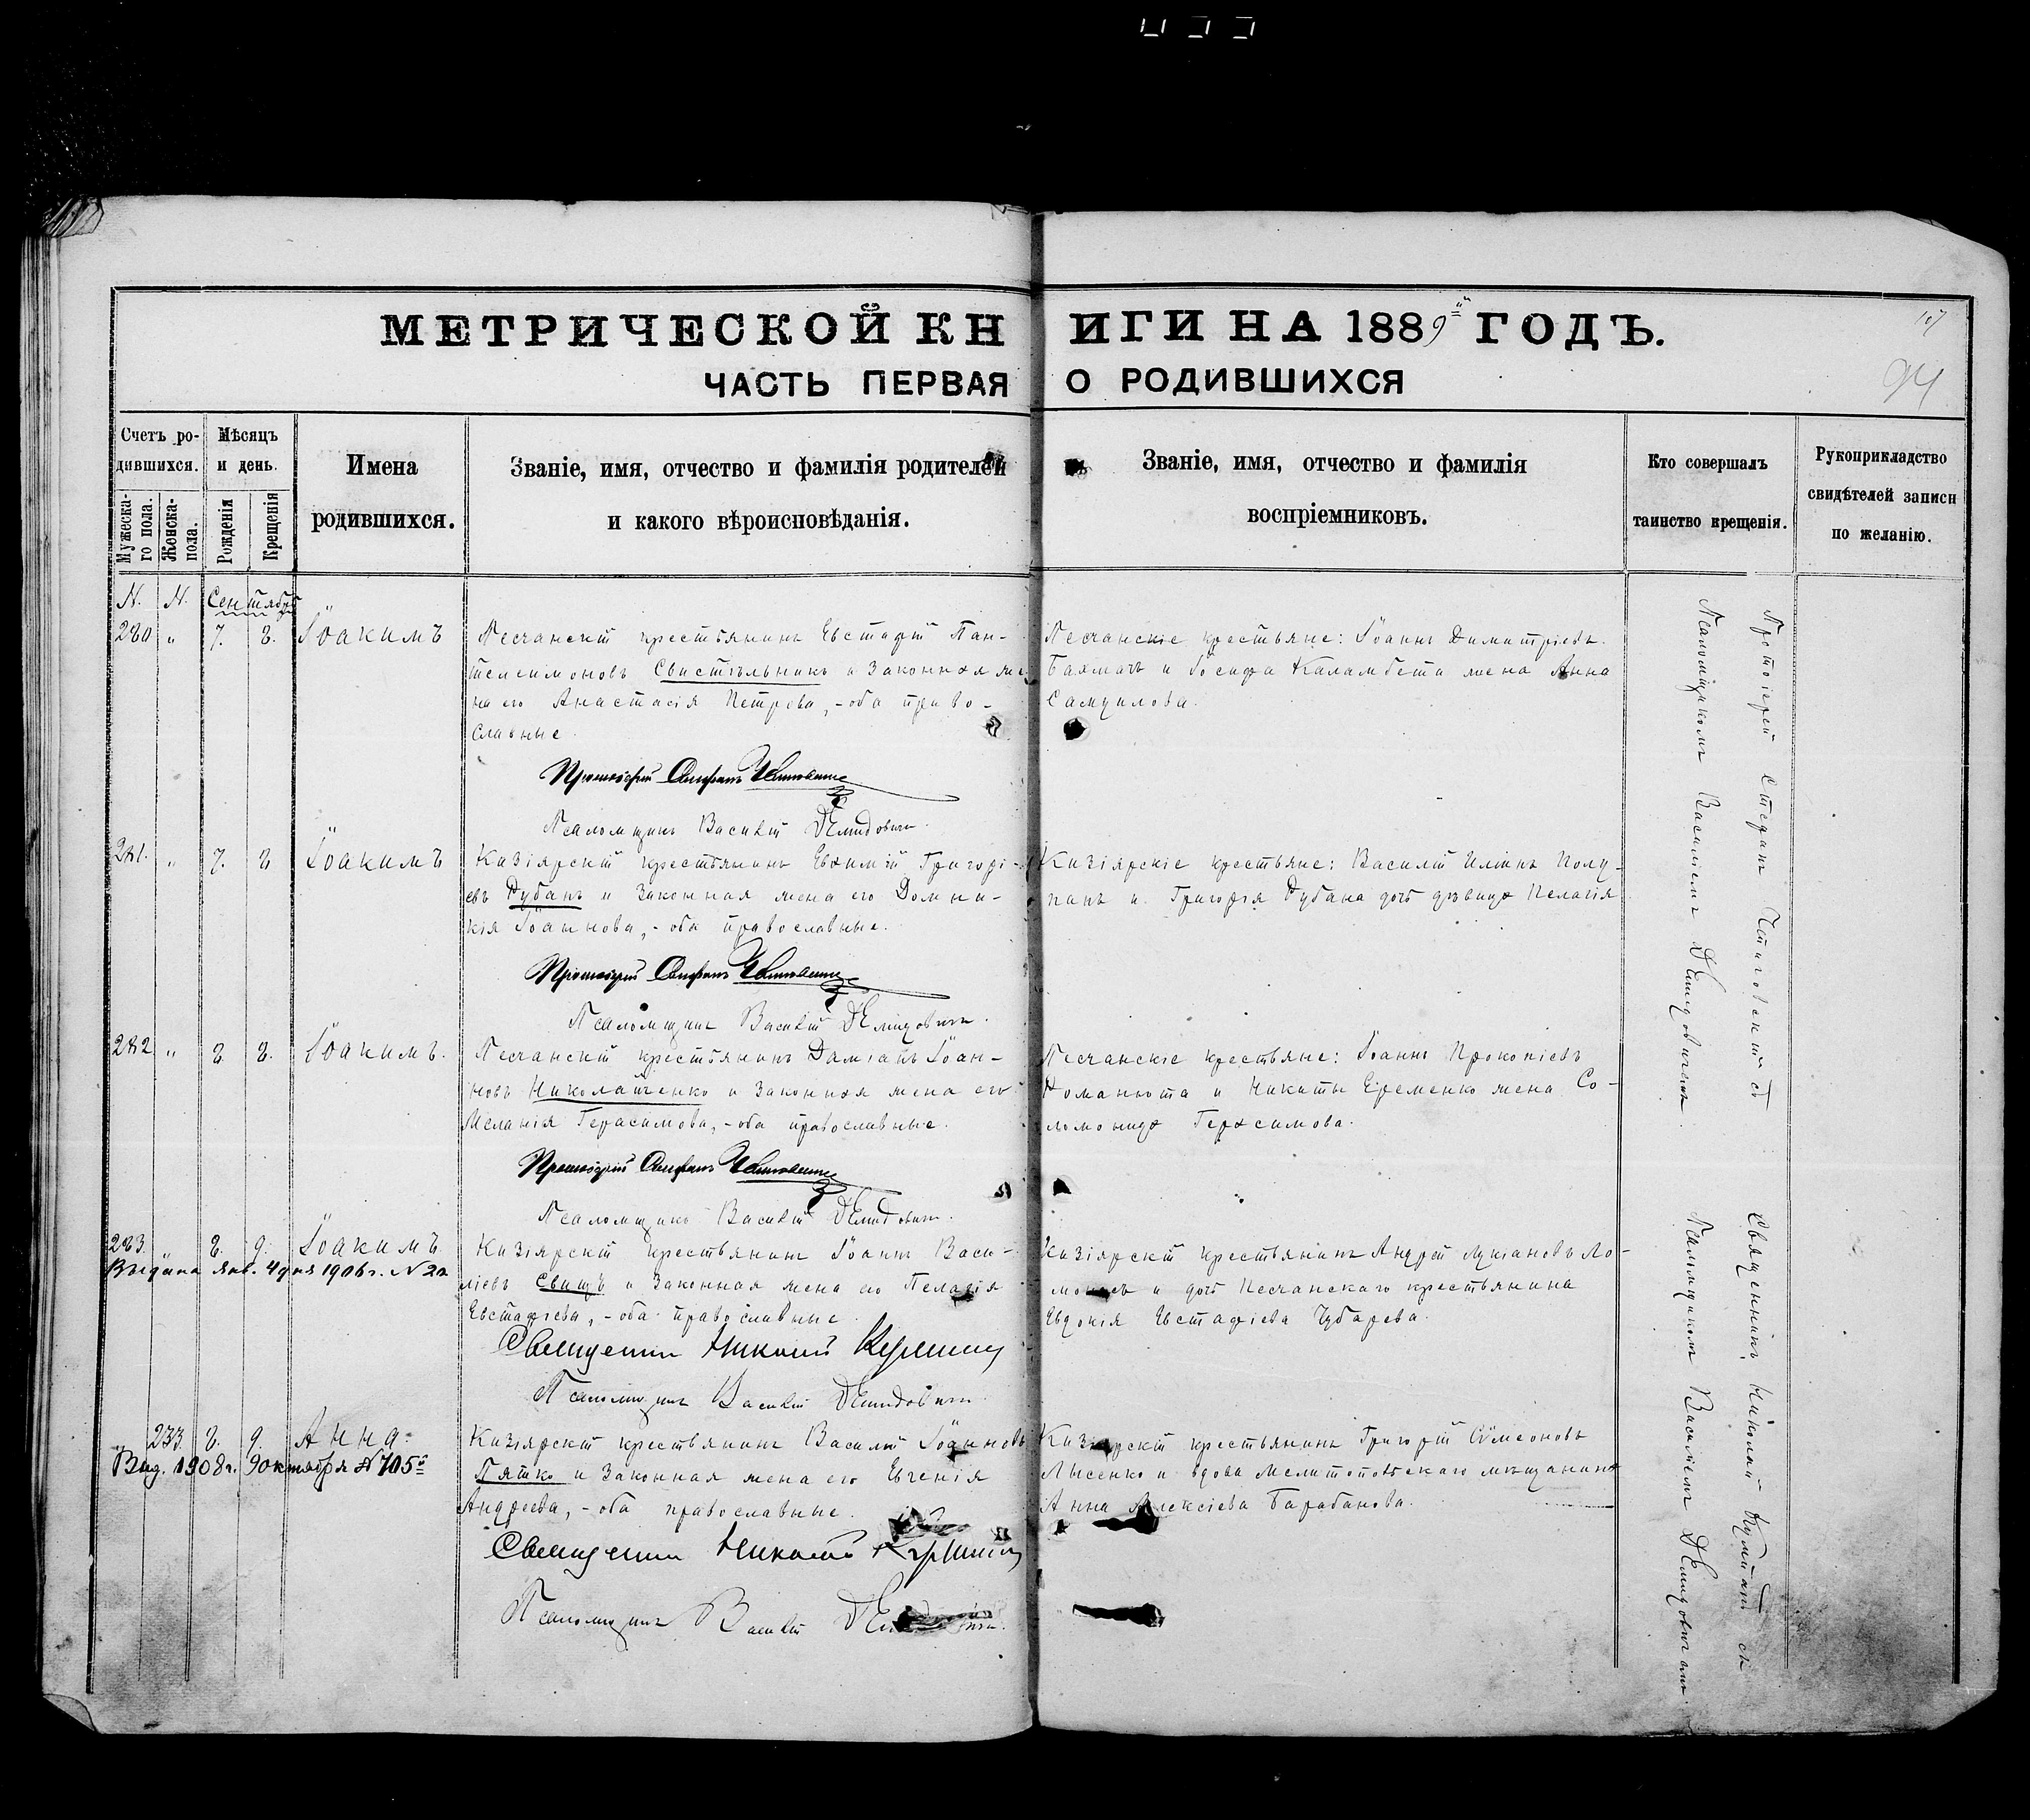 МЕТРИЧЕСКОЙ КНИГИ НА 1889й ГОДЪ.
107
94
ЧАСТЬ ПЕРВАЯ О РОДИВШИХСЯ
Счетъ родившихся.
Мужеска-го пола.
Женска- пола.
Мѣсяцъ и день.
Рожденія
Крещенія
Имена
родившихся.
Званіе, имя, отчество и фамилія родителей
и какого вѣроисповѣданія.
Званіе, имя, отчество и фамилія
воспріемниковъ.
Кто совершалъ
таинство крещенія.
Рукоприкладство
свидѣтелей записи
по желанію.
N. N. Сентябрь
280 „ 7. 8. Іоакимъ
Песчанскій крестьянинъ Евстафій Пан-
телеимоновъ Свистѣльникъ и законная же-
на его Анастасія Петрова, - оба право-
славные.
Песчанскіе крестьяне: Іоаннъ Димитріевъ
Бахмачъ и Іосифа Каламбета жена Анна
Самуилова.
Протоіерей Стефанъ
Псаломщикъ Василій Демидовичъ.
281. „ 7. 8 Іоакимъ
Кизіярскій крестьянинъ Евфимій Григорі-
евъ Дубанъ и законная жена его Домни-
кія Іоаннова, - оба православные.
Кизіярскіе крестьяне: Василій Илiинъ Полу-
панъ и Григорія Дубана дочь дѣвица Пелагія
Протоіерей Стефанъ
Псаломщикъ Василій Демидовичъ.
282 „ 8 8. Іоакимъ.
Песчанскій крестьянинъ Даміанъ Іоан-
новъ Николайченко и законная жена его
Меланія Герасимова, - оба православные.
Песчанскіе крестьяне: Іоаннъ Прокопіевъ
Романюта и Никиты Еременко жена Со-
ломонида Герасимова.
Протоіерей Стефанъ
Псаломщикъ Василій Демидовичъ.
283. 8. 9. Іоакимъ
Выдана Янв. 4 дня 1906 г. N 20
Кизіярскій крестьянинъ Іоаннъ Васи-
ліевъ Свищъ и законная жена его Пелагія
Евстафіева, - оба православные.
Кизіярскій крестьянинъ Андрей Лукіановъ Ло-
и дочь Песчанскаго крестьянина
Евдокія Евстафіева Чубарева.
Священникъ Николай
Псаломщикъ Василій Демидовичъ.
„ 233. 8. 9. Анна
Выд. 1908 г. 9 октября N 705й
Кизіярскій крестьянинъ Василій Іоанновъ
Пятко и законная жена его Евгенія
Андреева, - оба православные.
Кизіярскій крестьянинъ Григорій Сумеоновъ
Лысенко и вдова Мелитопольскаго мѣщанина
Анна Алексіева Барабанова.
Священникъ Николай
Псаломщикъ Василій
Протоіерей Стефанъ съ
Псаломщикомъ Василіемъ Демидовичемъ.
Священникъ Николай съ
Псаломщикомъ Василіемъ Демидовичемъ.